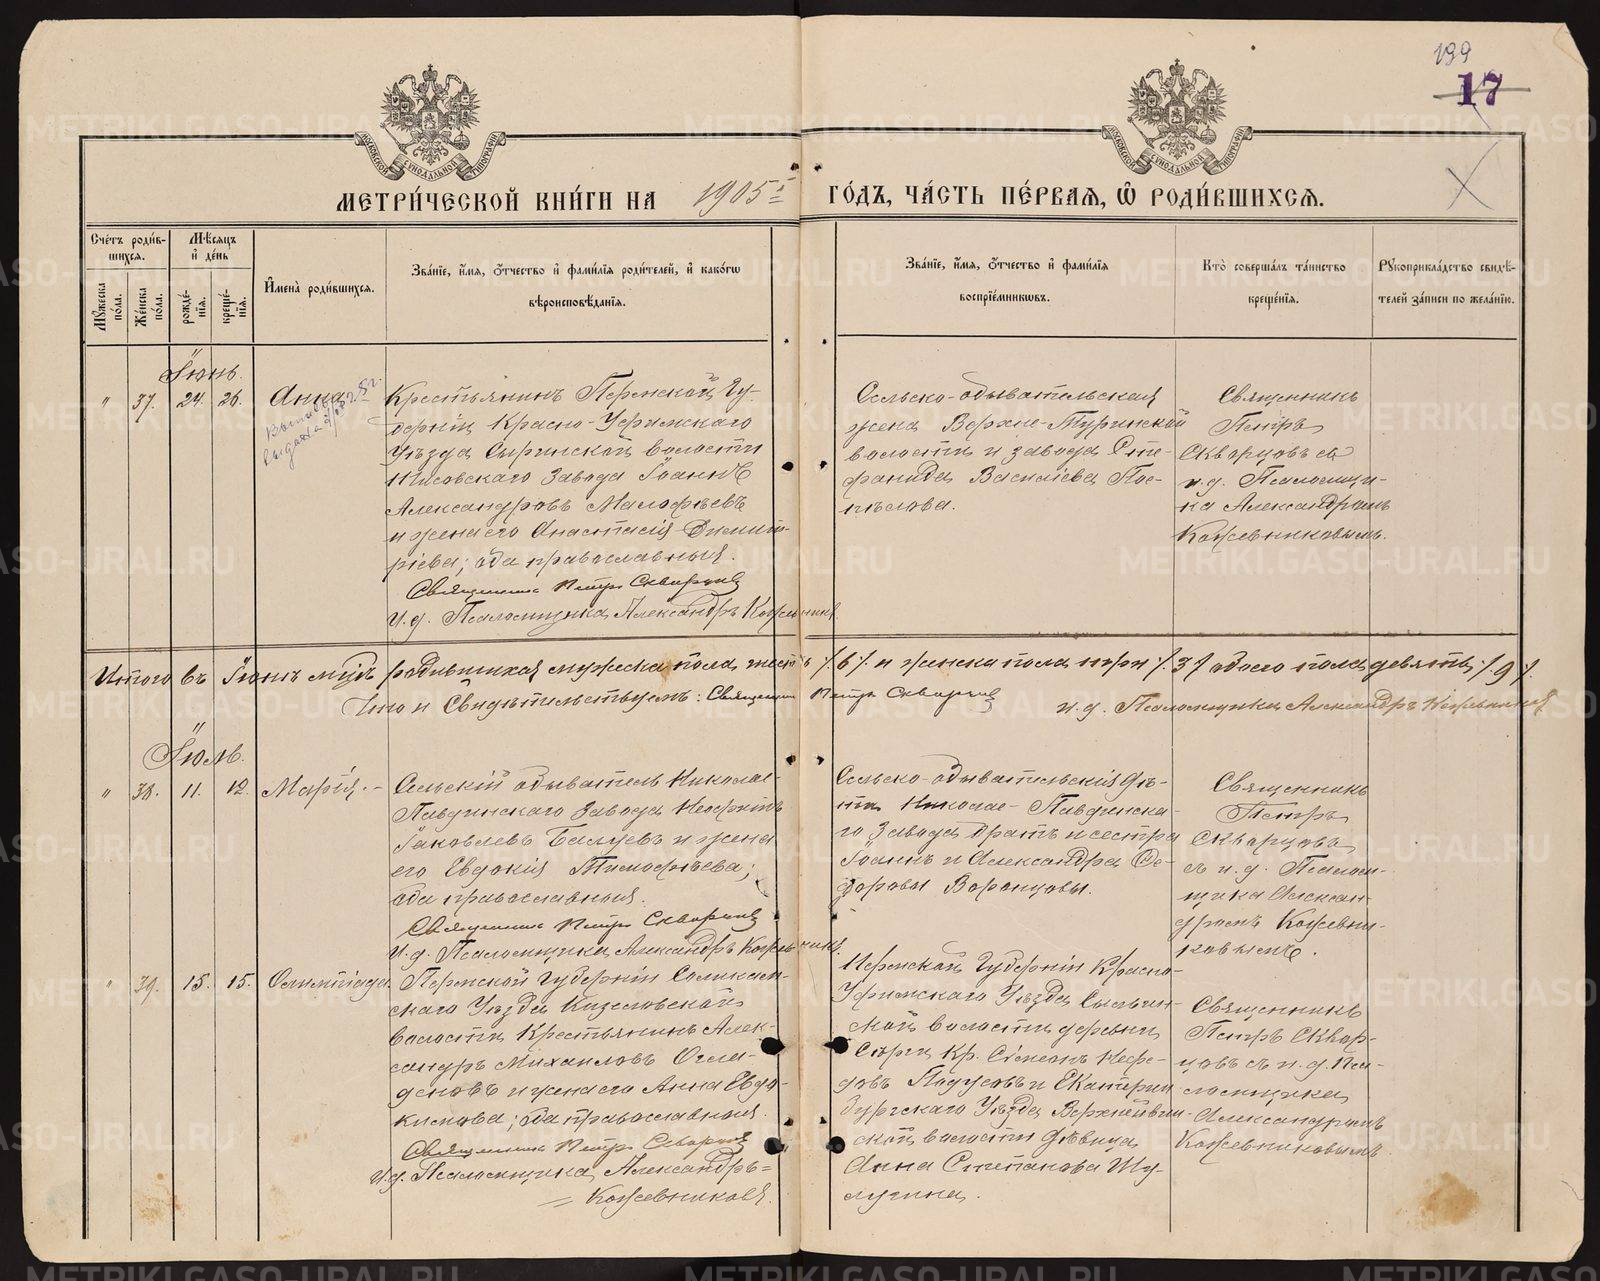 199
17
МОСКОВСКОЙ СѴНОДАЛЬНОЙ ТИПОГРАФІИ
МОСКОВСКОЙ СѴНОДАЛЬНОЙ ТИПОГРАФІИ
МЕТРИ́ЧЕСКОЙ КНИ́ГИ НА 1905 ГО́ДЪ, ЧА́СТЬ ПЕ́РВАЯ, Ѽ РОДИ́ВШИХСЯ.
Сче́тъ роди́в-
шихся.
Мѣ́сяцъ
и҆ де́нь
Мꙋ́жеска по́ла.
Же́нска по́ла.
рожде́нїя.
креще́нїя.
И҆мена̀ роди́вшихся.
Зва́нїе, и҆́мя, ѻ҆́тчество и҆ фами́лїя роди́телей, и҆ како́гѡ
вѣроисповѣ́данїя.
Зва́нїе, и҆́мя, ѻ҆́тчество и҆ фами́лїя
воспрїе́мникѡвъ.
Кто̀ соверша́лъ та́инство
креще́нїя.
Рꙋкоприкла́дство свидѣ́-
телей за́писи по жела́нїю.
Іюнь.
" 37. 24. 26. Анна
Крестьянинъ Пермской Гу-
берніи Красно-Уфимскаго
уѣзда Сыринской волости
Нисовскаго Завода Іоаннъ
Александровъ Малофѣевъ
и жена его Анастасія Димит-
ріева; оба православныя.
Священникъ Петръ Скворцовъ
И.д. Псаломщика Александръ Кожевников
Сельско-обывательская
жена Верхне-Туринской
волости и завода Сте-
фанида Василіева Пос-
пѣлова.
Священникъ
Петръ
Скворцовъ съ
и.д. Псаломщи-
ка Александромъ
Кожевниковымъ.
Итого въ Іюнѣ мцѣ родившихся мужеска пола шесть /.6/. и женска пола три /.3/ обоего пола девять /.9/.
Что и Свидѣтельствуемъ: Священникъ Петръ Скворцовъ
и.д. Псаломщика Александръ Кожевников
Іюль.
" 38. 11. 12. Марія. -
Сельскій обыватель Николае-
Павдинскаго Завода Неофитъ
Іаковлевъ Балуевъ и жена
его Евдокія Тимофѣева;
оба православныя.
Священникъ Петръ Скворцовъ
И.д. Псаломщика Александръ Кожевников.
Сельско-обывательскія дѣ-
ти Николае-Павдинска-
го Завода братъ и сестра
Іоаннъ и Александра Ѳе-
доровы Воронцовы.
Священникъ
Петръ
Скворцовъ
съ и.д. Псалом-
щика Алексан-
дромъ Кожевни-
ковымъ.
" 39. 15. 15. Олимпіада
Пермской Губерніи Соликам-
скаго Уѣзда Кизеловской
волости Крестьянинъ Алек-
сандръ Михаиловъ
и жена его Анна Евдо-
кимова; оба православныя.
Священникъ Петръ Скворцовъ
И.д. Псаломщика Александръ
Кожевниковъ.
Пермской Губерніи Красно-
Уфимскаго Уѣзда
ской волости деревни
Сарги Кр. Симеонъ Неѳе-
довъ и Екатерин
бургскаго Уѣзда Верхнейвин-
ской волости дѣвица
Анна Степанова Шу-
лугина.
Священникъ
Петръ Сквор-
цовъ съ и.д. Пса-
ломщика
Александромъ
Кожевниковымъ.
METRIKI.GASO-URAL.RU